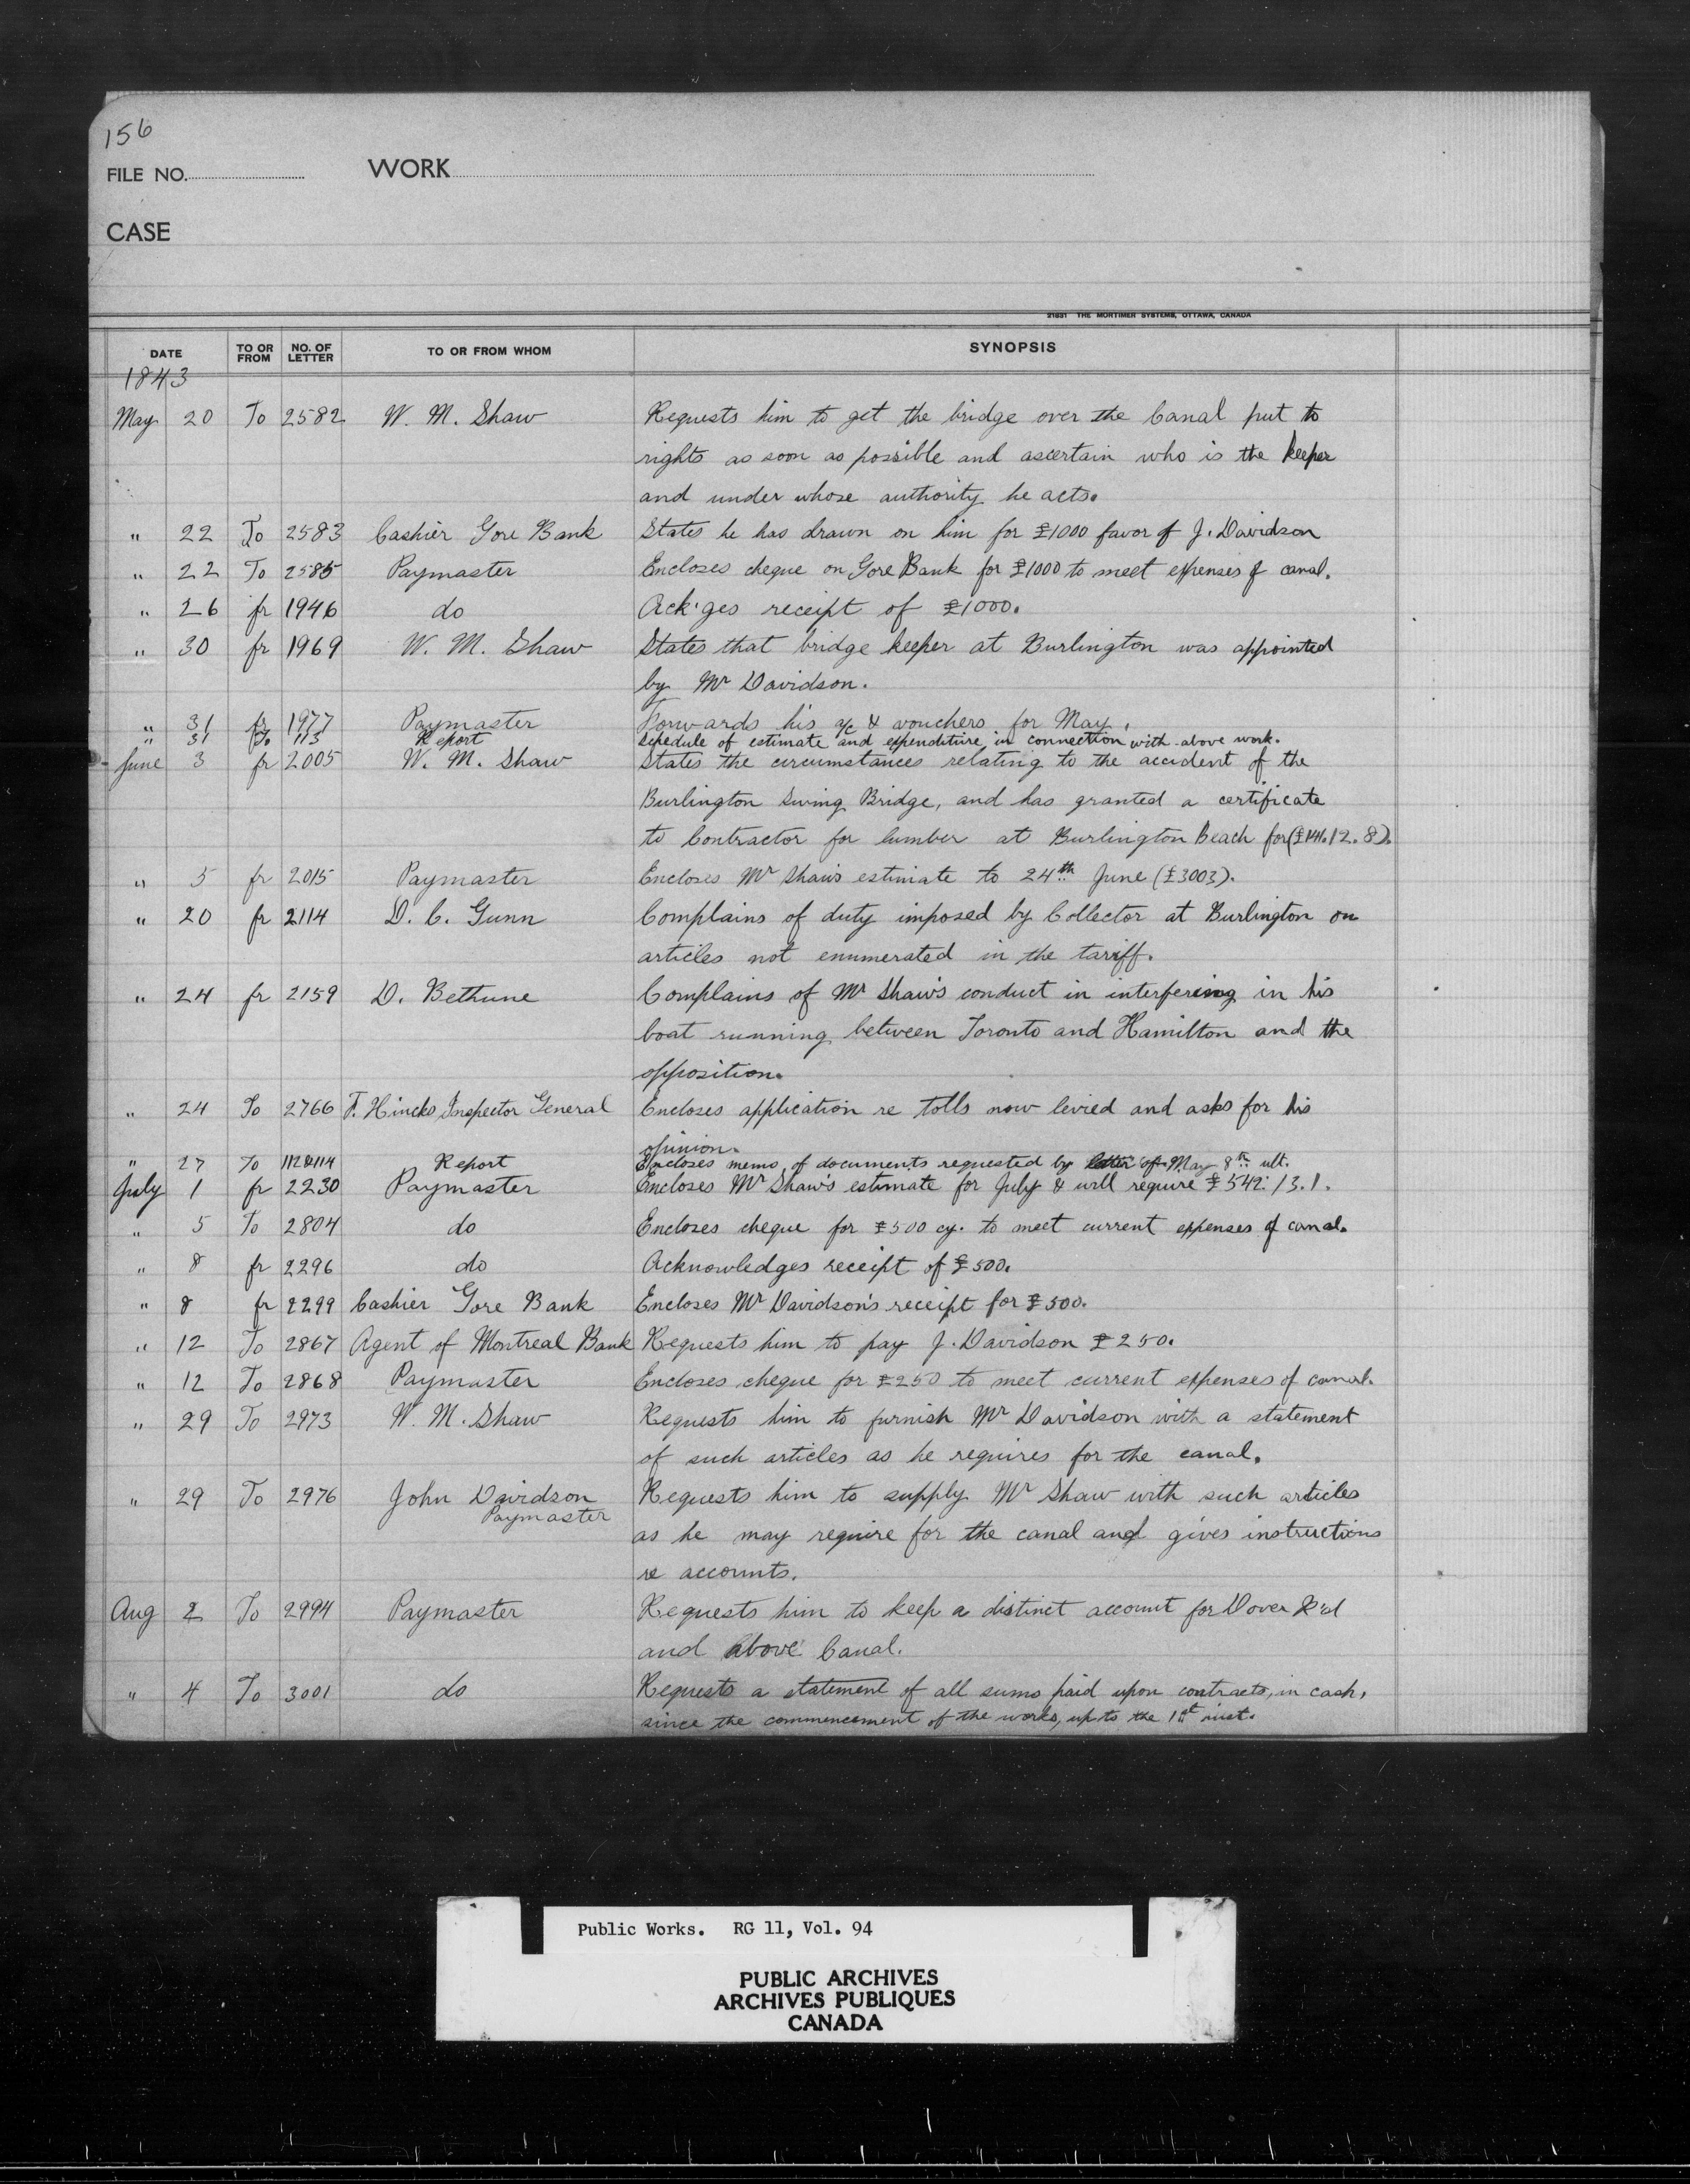 156
FILE NO. WORK
CASE
21531 THE MORTIMER SYSTEMS, OTTAWA, CANADA
DATE TO OR FROM NO. OF LETTER TO OR FROM WHOM SYNOPSIS
1843
May 20 To 2582 W. M. Shaw Requests him to get the bridge over the Canal put to
rights as soon as possible and ascertain who is the keeper
and under whose authority he acts.
" 22 To 2583 Cashier Gore Bank States he has drawn on him for £1000 favor of J. Davidson
" 22 To 2585 Paymaster Encloses cheque on Gore Bank for £1000 to meet expenses of canal.
" 26 fr 1946 do Ack'ges receipt of £1000.
" 30 fr 1969 W. M. Shaw States that bridge keeper at Burlington was appointed
by Mr Davidson.
" 31 fr 1977 Paymaster Forwards his a/c & vouchers for May.
" 31 To 113 Report Schedule of estimate and expenditure in connection with above work.
June 3 fr 2005 W. M. Shaw States the circumstances relating to the accident of the
Burlington Swing Bridge, and has granted a certificate
to Contractor for lumber at Burlington Beach for (£141.12.8).
" 5 fr 2015 Paymaster Encloses Mr Shaw's estimate to 24th June (£3003).
" 20 fr 2114 D. C. Gunn Complains of duty imposed by Collector at Burlington on
articles not enumerated in the tariff.
" 24 fr 2159 D. Bethune Complains of Mr Shaw's conduct in interfering in his
boat running between Toronto and Hamilton and the
opposition.
" 24 To 2766 F. Hincks Inspector General Encloses application re tolls now levied and asks for his
opinion.
" 27 To 112&114 Report Encloses memo of documents requested by letter of May 8th ult.
July 1 fr 2230 Paymaster Encloses Mr Shaw's estimate for July & will require £542.13.1.
" 5 To 2804 do Encloses cheque for £500 cy. to meet current expenses of canal.
" 8 fr 2296 do Acknowledges receipt of £500.
" 8 fr 2299 Cashier Gore Bank Encloses Mr Davidson's receipt for £500.
" 12 To 2867 Agent of Montreal Bank Requests him to pay J. Davidson £250.
" 12 To 2868 Paymaster Encloses cheque for £250 to meet current expenses of canal.
" 29 To 2973 W. M. Shaw Requests him to furnish Mr Davidson with a statement
of such articles as he requires for the canal.
" 29 To 2976 John Davidson Requests him to supply Mr Shaw with such articles
Paymaster
as he may require for the canal and gives instructions
re accounts.
Aug 2 To 2994 Paymaster Requests him to keep a distinct account for Dover R'd
and above Canal.
" 4 To 3001 do Requests a statement of all sums paid upon contracts, in cash,
since the commencement of the works, up to the 1st inst.
Public Works. RG 11, Vol. 94
PUBLIC ARCHIVES
ARCHIVES PUBLIQUES
CANADA